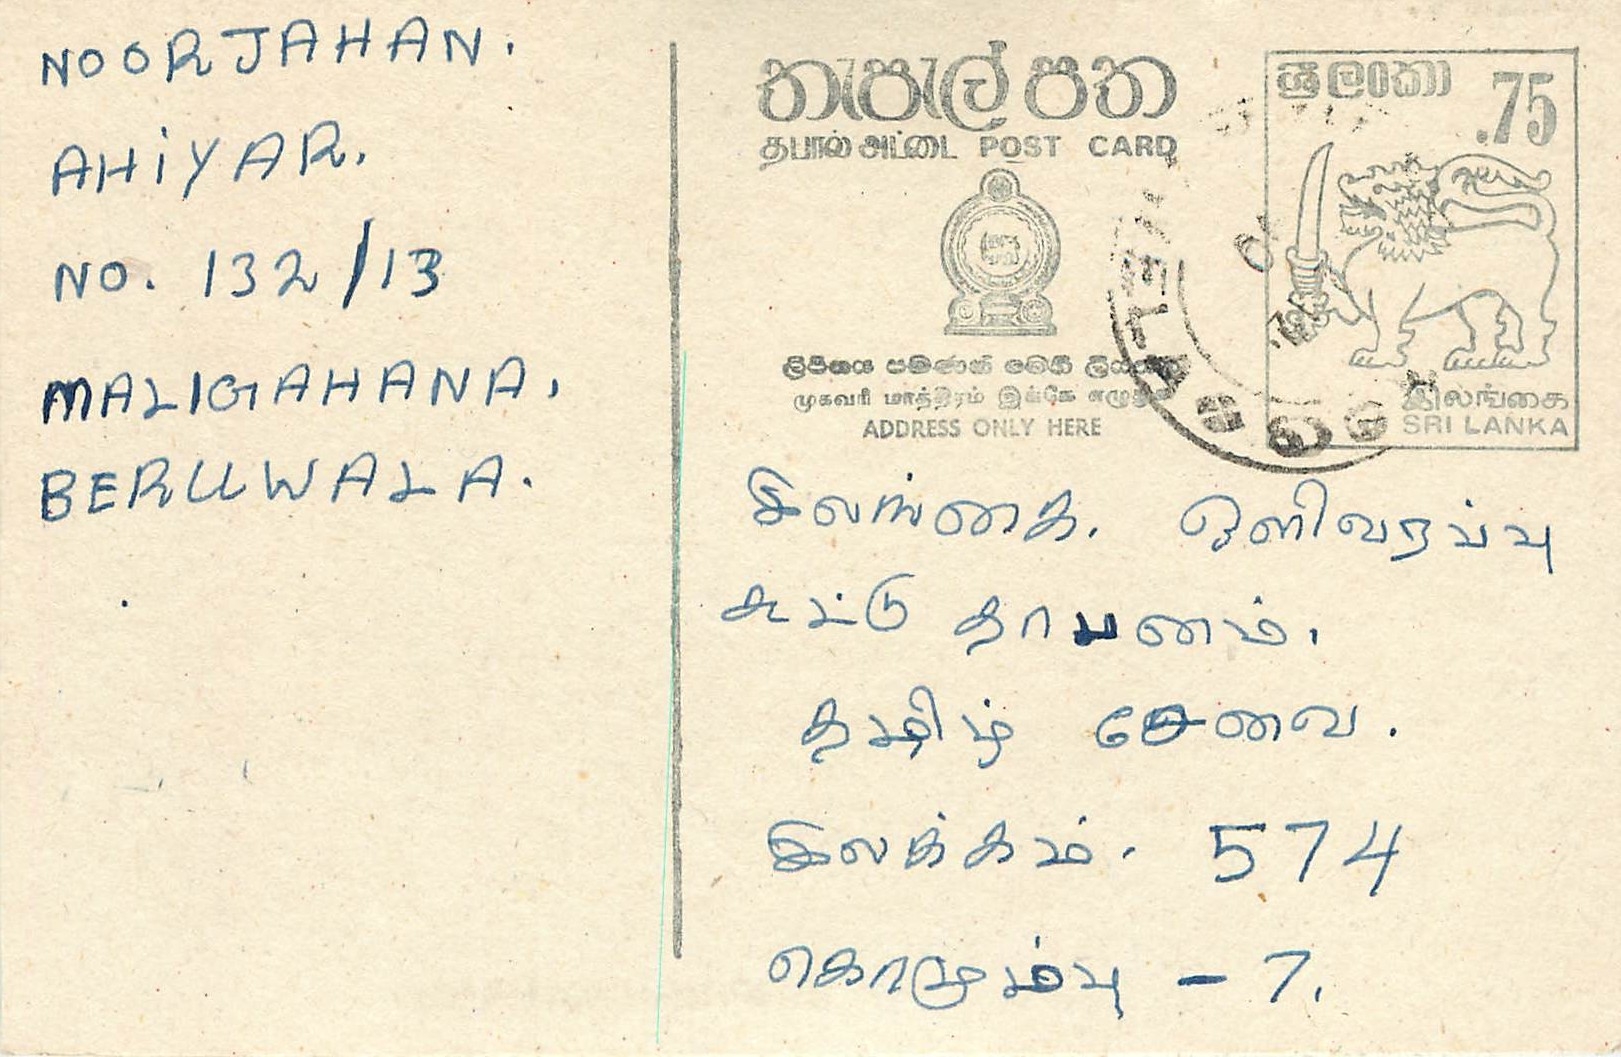 NOORJAHAN.
AHiYAR.
NO. 132/13
MALIGAHANA.
BERUWALA.
තැපැල් පත
தபால் அட்டை POST CARD
ශ්‍රී ලංකා .75
ලිපිනය පමණක් මෙහි
முகவரி மாத்திரம் இங்கே எழுதுக
ADDRESS ONLY HERE
இலங்கை
SRI LANKA
இலங்கை. ஒளிவரப்பு
கூட்டு தாபனம்.
தமிழ் சேவை.
இலக்கம். 574
கொழும்பு - 7.